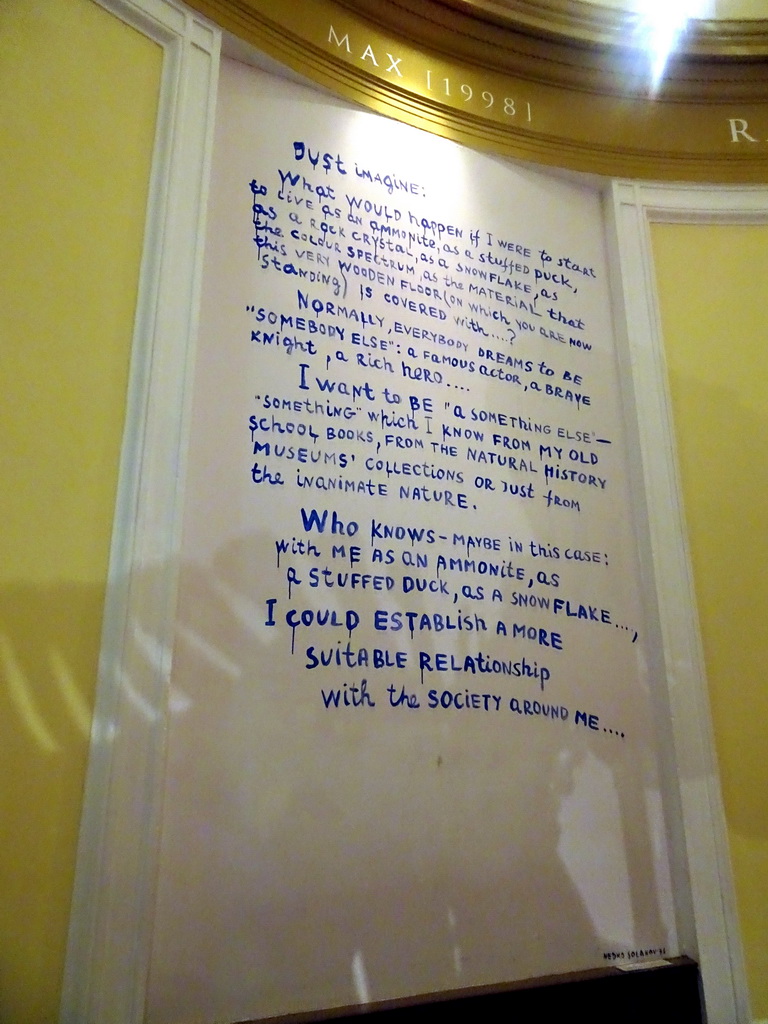 MAX [1998]
R
JUST IMAGINE:
What WOULD happen if I WERE to start
to LIVE AS AN AMMONITE, AS a stuffed DUCK,
as a ROCK CRYSTAL, AS a SNOWFLAKE, as
the COLOUR SPECTRUM, AS the MATERIAL that
this VERY WOODEN FLOOR (ON which YOU ARE NOW
STANDING) IS COVERED with....?
NORMALLY, EVERYBODY DREAMS to BE
"SOMEBODY ELSE": a FAMOUS ACTOR, a BRAVE
KNIGHT, a RICH HERO....
I WANT to BE "a SOMETHING ELSE" —
"SOMETHING" which I KNOW FROM MY OLD
SCHOOL BOOKS, FROM THE NATURAL HISTORY
MUSEUMS' COLLECTIONS OR JUST from
the INANIMATE NATURE.
WHO KNOWS - MAYBE IN this CASE:
with ME AS AN AMMONITE, AS
a STUFFED DUCK, AS A SNOWFLAKE....,
I COULD ESTABLISH A MORE
SUITABLE RELATIONSHIP
with the SOCIETY AROUND ME....
NEDKO SOLAKOV